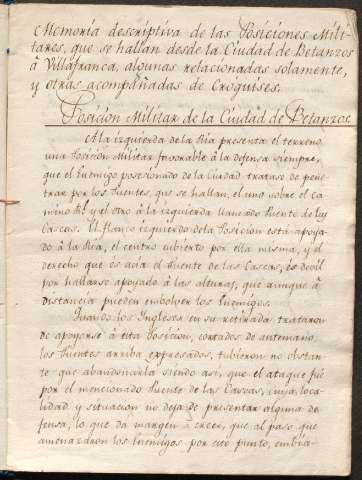 Memoria descriptiva de las Posiciones Mili-
tares, que se hallan desde la Ciudad de Betanzos
à Villafranca, algunas relacionadas solamente,
y otras acompañadas de Croquises.
Posición Militar de la Ciudad de Betanzos.
A la izquierda de la Ria presenta el terreno
una Posición Militar favorable à la defensa siempre,
que el Enemigo posecionado de la Ciudad tratase de pene-
trar por los Puentes, que se hallan, el uno sobre el Ca
mino Rl. y el otro à la izquierda llamado Puente de las
Cascas. El flanco izquierdo de la Posición está apoya-
do à la Ria, el centro cubierto por ella misma, y el
derecho que és acia el Puente de las Cascas, és devil
por hallarse apoyado à las alturas, que aunque à
distancia pueden embolver los Enemigos.
Quando los Ingleses en su retirada trataron
de apoyarse à esta Posición, cortados de antemano
los Puentes arriba expresados, tubieron no obstan
te que abandonarla siendo asi, que el ataque fué
por el mencionado Puente de las Cascas, cuya loca-
lidad y situacion no deja de presentar alguna de
fensa, lo que da margen à creer, que al paso que
amenazaron los Enemigos por este punto, embia-